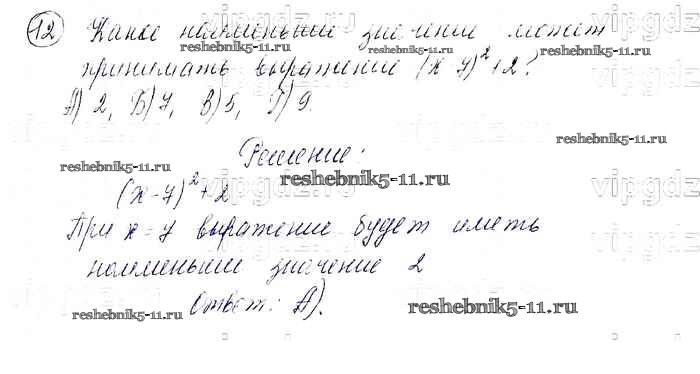 12 Какое наименьшее значение может
reshebnik5-11.ru reshebnik5-11.ru
принимать выражение (x-7)²+2?
А) 2, Б) 7, В) 5, Г) 9.
reshebnik5-11.ru
Решение:
reshebnik5-11.ru reshebnik5-11.ru
(x-7)²+2
При x=7 выражение будет иметь
наименьшее значение 2
Ответ: А).
reshebnik5-11.ru reshebnik5-11.ru
vipgdz
vipgdz
vipgdz
vipgdz